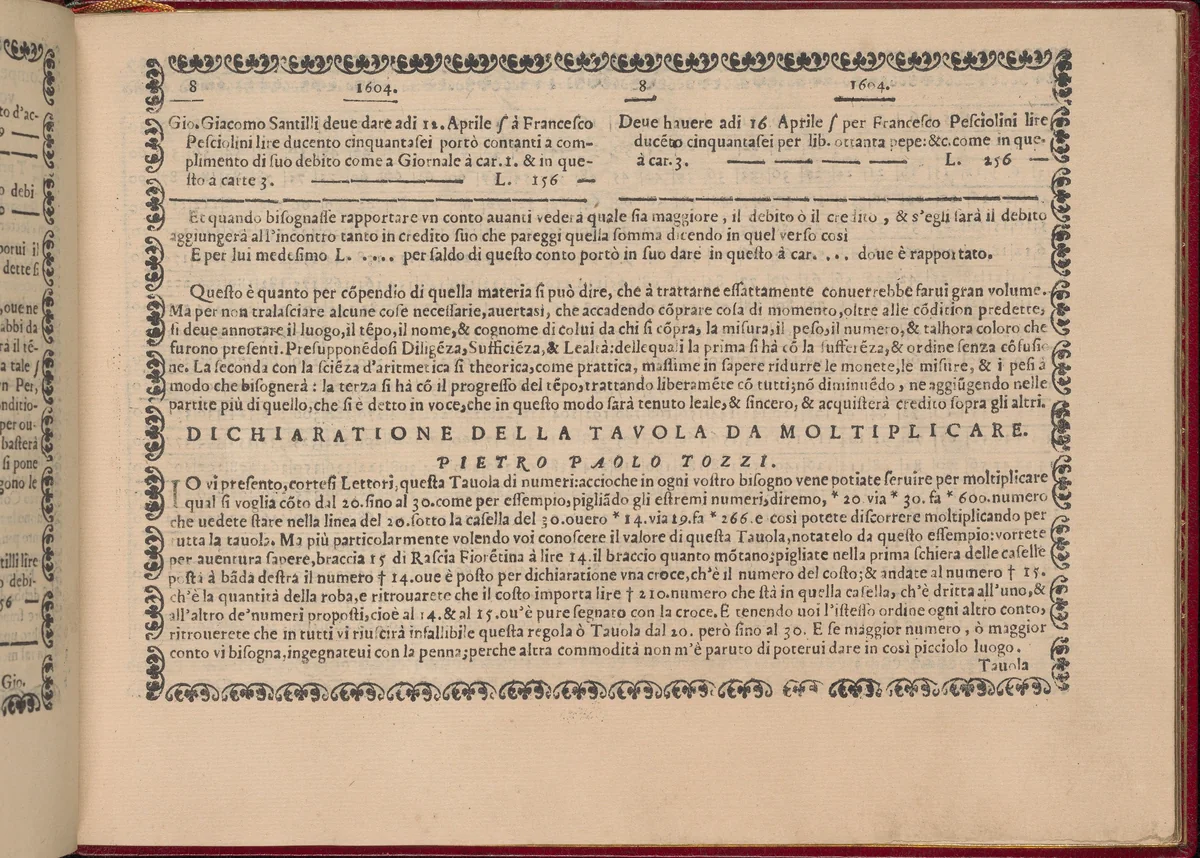 to d'ac-
9
o debi
porui il
dette si
,oue ne
abbi da
rà il tē-
a tale ſ
n Per,
onditio-
per ou-
basterà
si pone
gono le
tilli lire
, debi-
56 —
Gio.
8 1604.
Gio. Giacomo Santilli deue dare adi 12. Aprile ſ à Francesco
Pesciolini lire ducento cinquantasei portò contanti a com-
plimento di suo debito come a Giornale à car. 1. & in que-
sto à carte 3. — L. 156 —
8 1604.
Deue hauere adi 16 Aprile ſ per Francesco Pesciolini lire
ducēto cinquantasei per lib. ottanta pepe: &c. come in que-
à car. 3. — — — — L. 256 —
Et quando bisognasse rapportare vn conto auanti vederà quale sia maggiore, il debito ò il credito, & s'egli sarà il debito
aggiungerà all'incontro tanto in credito suo che pareggi quella somma dicendo in quel verso cosi
E per lui medesimo L. . . . . per saldo di questo conto portò in suo dare in questo à car. . . . doue è rapportato.
Questo è quanto per cōpendio di quella materia si può dire, che à trattarne essattamente conuerrebbe farui gran volume.
Ma per non tralasciare alcune cose necessarie, auertasi, che accadendo cōprare cosa di momento, oltre alle cōdition predette,
si deue annotare il luogo, il tēpo, il nome, & cognome di colui da chi si cōpra, la misura, il peso, il numero, & talhora coloro che
furono presenti. Presupponēdosi Diligēza, Sufficiēza, & Lealtà: delle quali la prima si hà cō la sufferēza, & ordine senza cōfusio
ne. La seconda con la sciēza d'aritmetica sì theorica, come prattica, massime in sapere ridurre le monete, le misure, & i pesi a
modo che bisognerà: la terza si hà cō il progresso del tēpo, trattando liberamēte cō tutti; nō diminuēdo, ne aggiūgendo nelle
partite più di quello, che si è detto in voce, che in questo modo sarà tenuto leale, & sincero, & acquisterà credito sopra gli altri.
DICHIARATIONE DELLA TAVOLA DA MOLTIPLICARE.
PIETRO PAOLO TOZZI.
IO vi presento, cortesi Lettori, questa Tauola di numeri: accioche in ogni vostro bisogno vene potiate seruire per moltiplicare
qual si voglia cōto dal 20. fino al 30. come per essempio, pigliādo gli estremi numeri, diremo, * 20 via * 30. fa * 600. numero
che uedete stare nella linea del 20. sotto la casella del 30. ouero * 14. via 19. fa * 266. e così potete discorrere moltiplicando per
tutta la tauola. Ma più particolarmente volendo voi conoscere il valore di questa Tauola, notatelo da questo essempio: vorrete
per auentura sapere, braccia 15 di Rascia Fiorētina à lire 14. il braccio quanto mōtano; pigliate nella prima schiera delle caselle
posta à bāda destra il numero † 14. oue è posto per dichiaratione vna croce, ch'è il numero del costo; & andate al numero † 15.
ch'è la quantità della roba, e ritrouarete che il costo importa lire † 210. numero che stà in quella casella, ch'è dritta all'uno, &
all'altro de' numeri proposti, cioè al 14. & al 15. ou'è pure segnato con la croce. E tenendo uoi l'istesso ordine ogni altro conto,
ritrouerete che in tutti vi riuscirà infallibile questa regola ò Tauola dal 20. però sino al 30. E se maggior numero, ò maggior
conto vi bisogna, ingegnateui con la penna; perche altra commodità non m'è paruto di poterui dare in così picciolo luogo.
Tauola